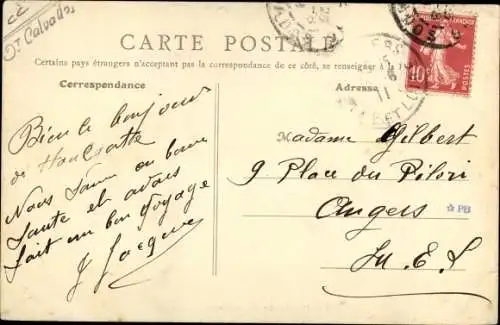 Calvados
CARTE POSTALE
Certains pays étrangers n'acceptant pas la correspondance de ce côté, se renseigner à la
Correspondance
Adresse
10
POSTES
11
Bien le bonjour
de
Nous sommes en bonne
Santé et avons
fait un bon voyage
J. Jacques
Madame Gilbert
9 Place du Pilori
Angers
M. E. L
PB